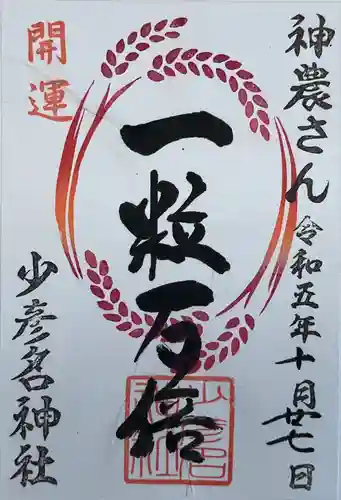 神農さん 令和五年十月廿七日
開運
一粒万倍
少彦名神社